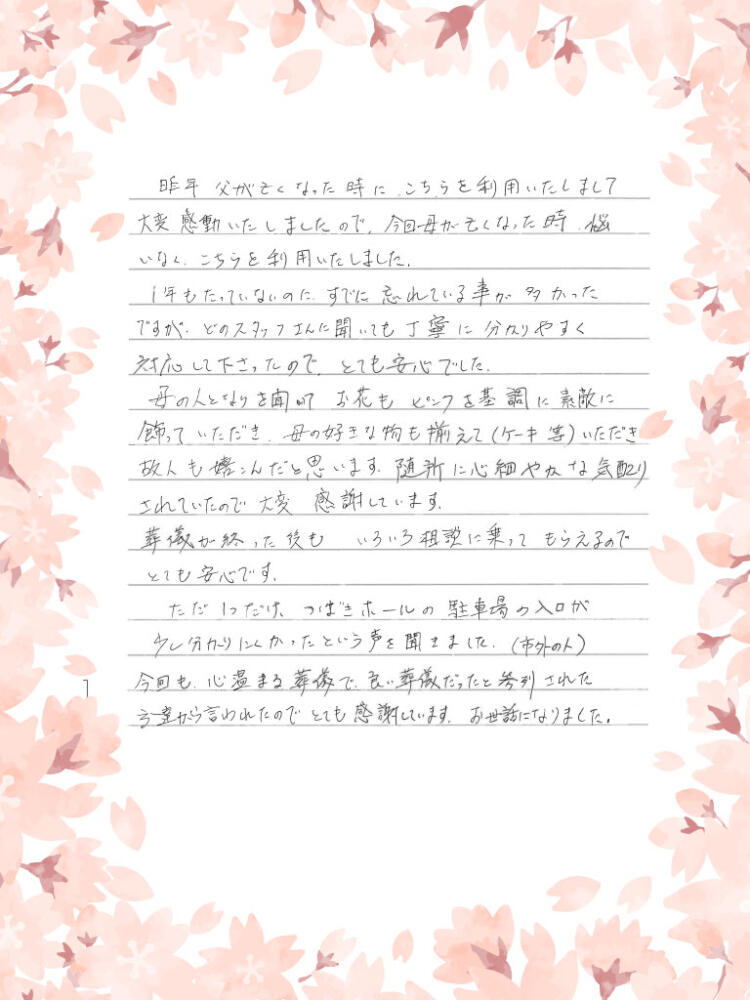 昨年 父が亡くなった時に、こちらを利用いたしまして
大変感動いたしましたので、今回母が亡くなった時、悩
いなく、こちらを利用いたしました。
1年もたっていないのに、すでに忘れている事が多かった
ですが、どのスタッフさんに聞いても丁寧に分かりやすく
対応して下さったので、とても安心でした。
母の人となりを聞いて お花も ピンクを基調に素敵に
飾っていただき、母の好きな物も揃えて(ケーキ等)いただき
故人も嬉こんだと思います。随所に心細やかな気配り
されていたので大変 感謝しています。
葬儀が終った後も いろいろ相談に乗って もらえるので
とても安心です。
ただ1つだけ、つばきホールの駐車場の入口が
少し分かりにくかったという声を聞きました。(市外の人)
今回も、心温まる葬儀で、良い葬儀だったと参列された
方達から言われたのでとても感謝しています。お世話になりました。